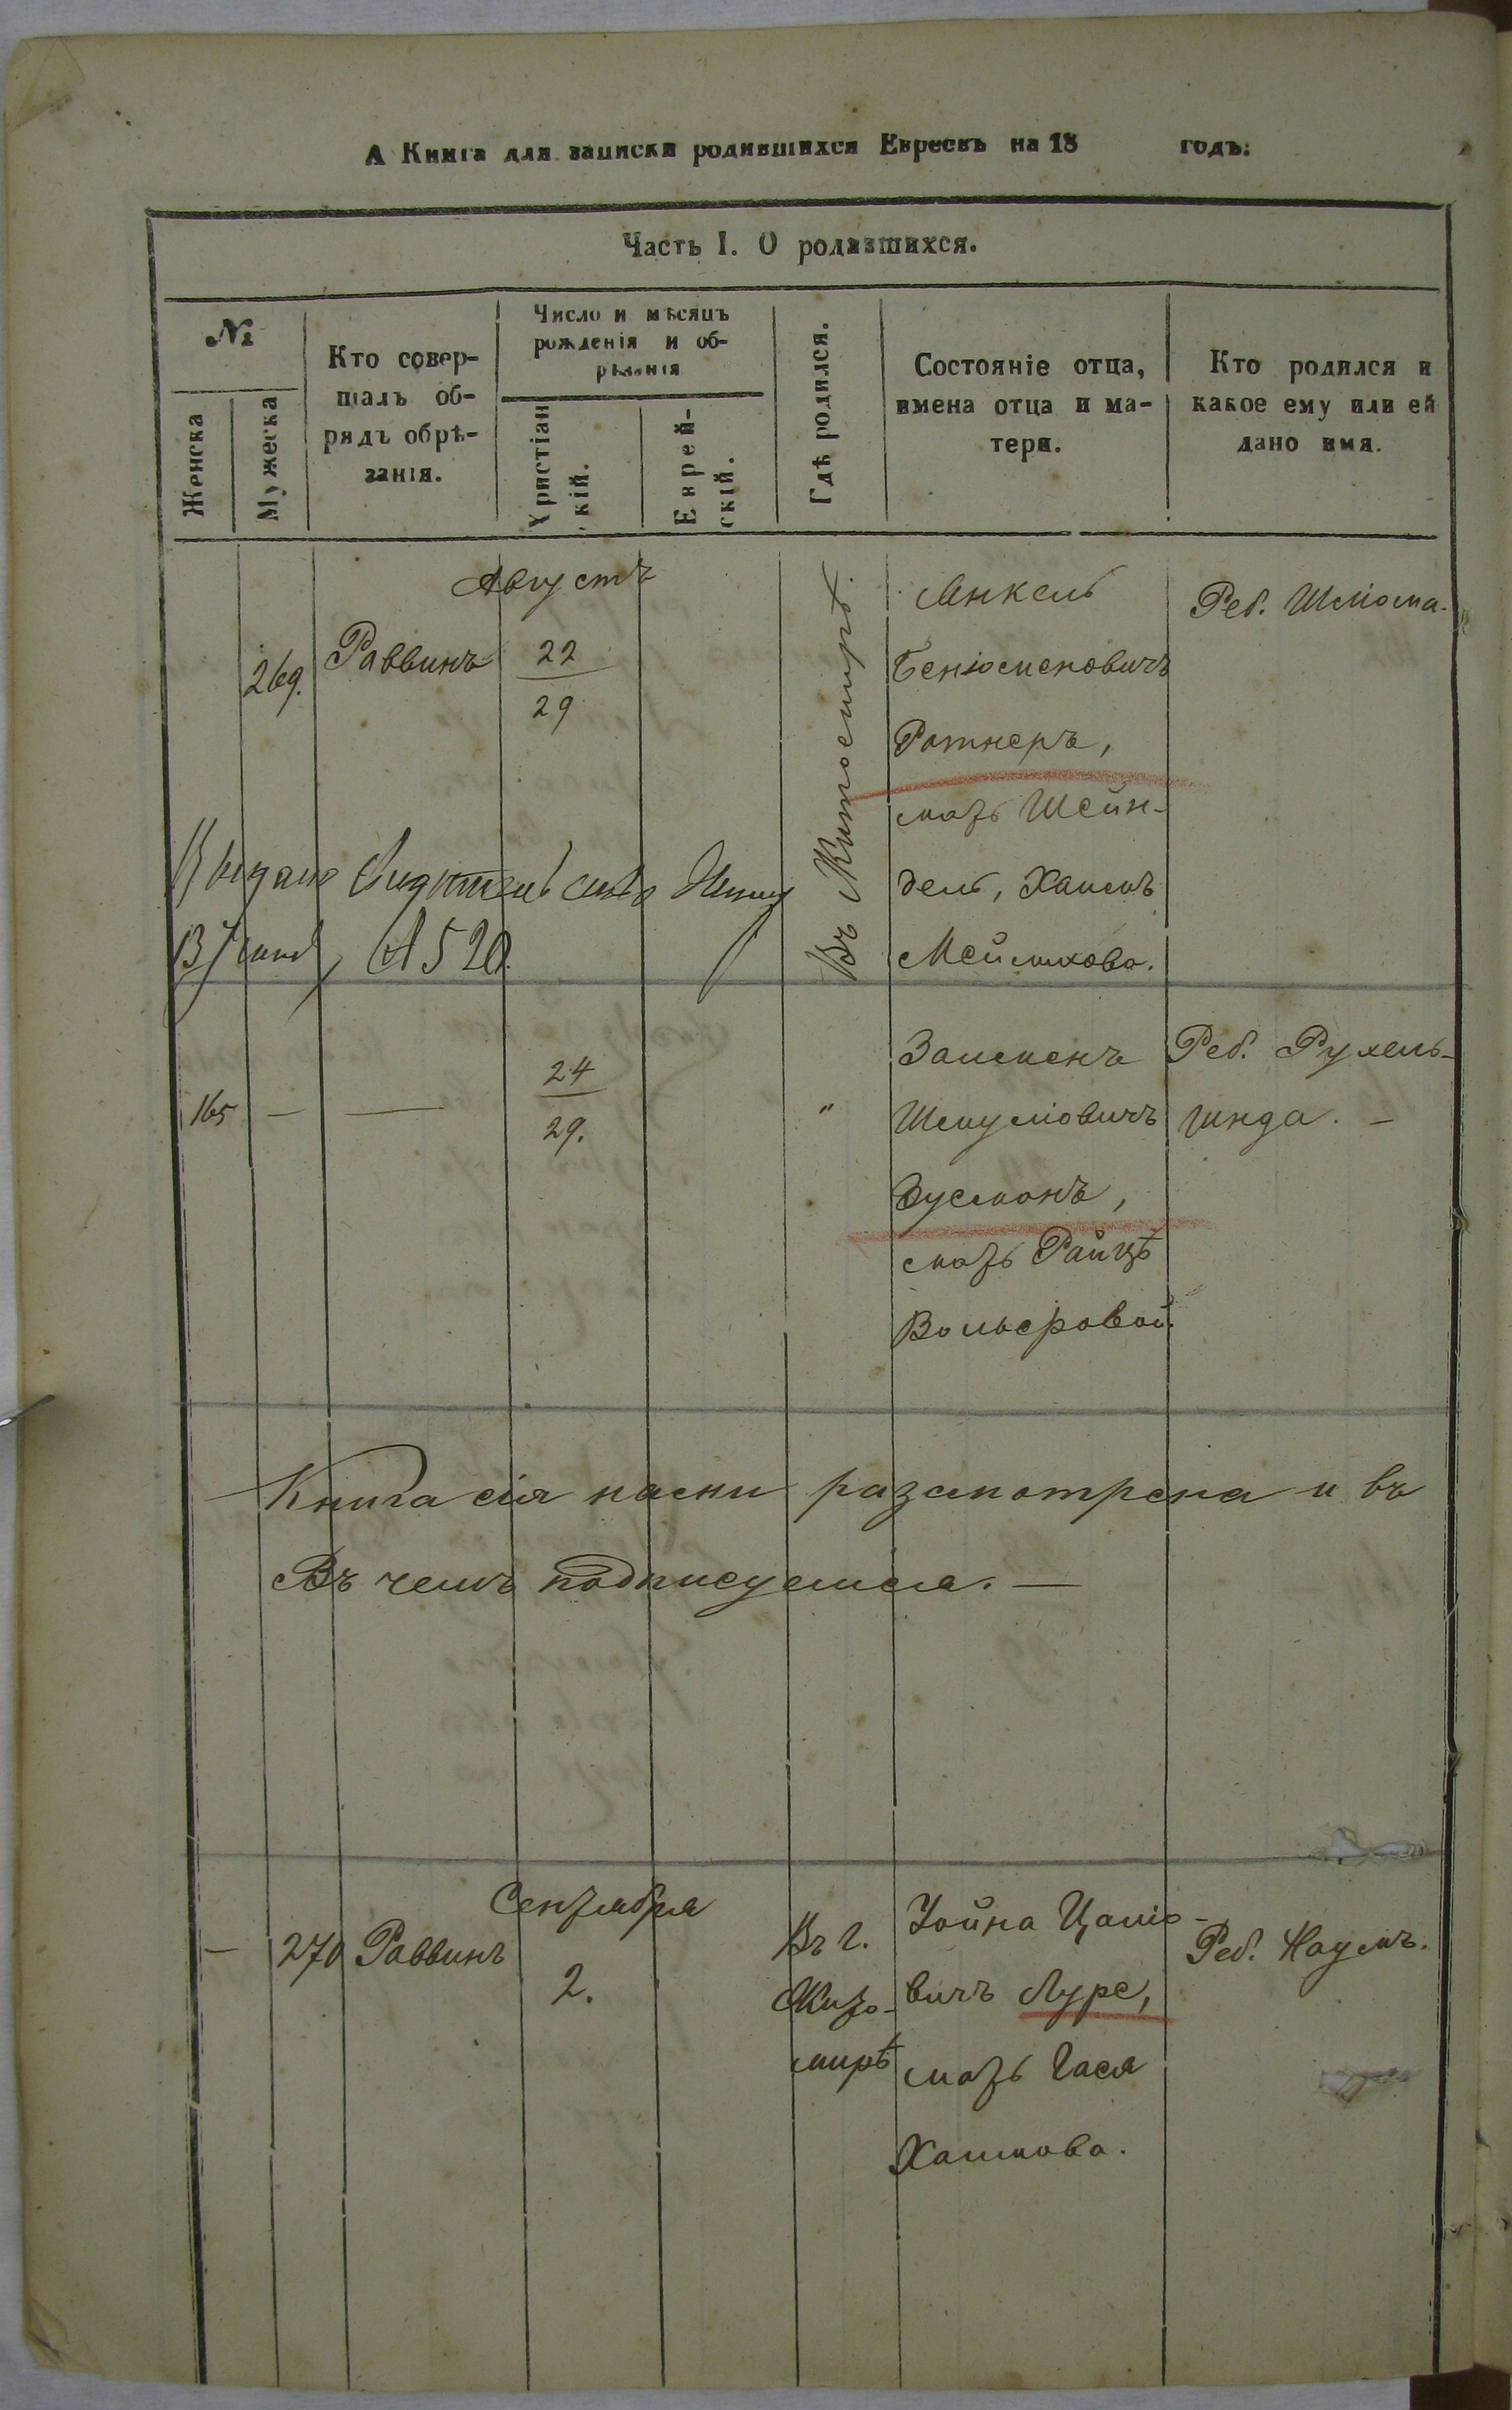 А Книга для записки родившихся Евреевъ на 18 годъ.
Часть I. О родившихся.
№
Женска
Мужеска
Кто совер-
шалъ об-
рядъ обрѣ-
занія.
Число и мѣсяцъ
рожденія и об-
рѣзанія
Христіан
скій.
Еврей-
скій.
Гдѣ родился.
Состояніе отца,
имена отца и ма-
тери.
Кто родился и
какое ему или ей
дано имя.
Августъ
269.
Раввинъ
22
29
Въ Житомирѣ.
Янкель
Беніоменовичъ
Ротнеръ,
мать Шейн-
дель, Хаимъ
Мейлихова.
Реб. Шліома.
Выдано
№ 520
165
—
—
24
29.
"
Залменъ
Шмуліовичъ
Зусманъ,
мать Райцѣ
Вольфовой.
Реб. Рухель-
Гинда. —
Книга сія нами разсмотрена и въ
Въ чемъ подписуемся. —
Сентября
—
270
Раввинъ
2.
Въ г.
Жито-
мирѣ
Іойна
вичъ Луре,
мать Гася
Хаимова.
Реб. Наумъ.